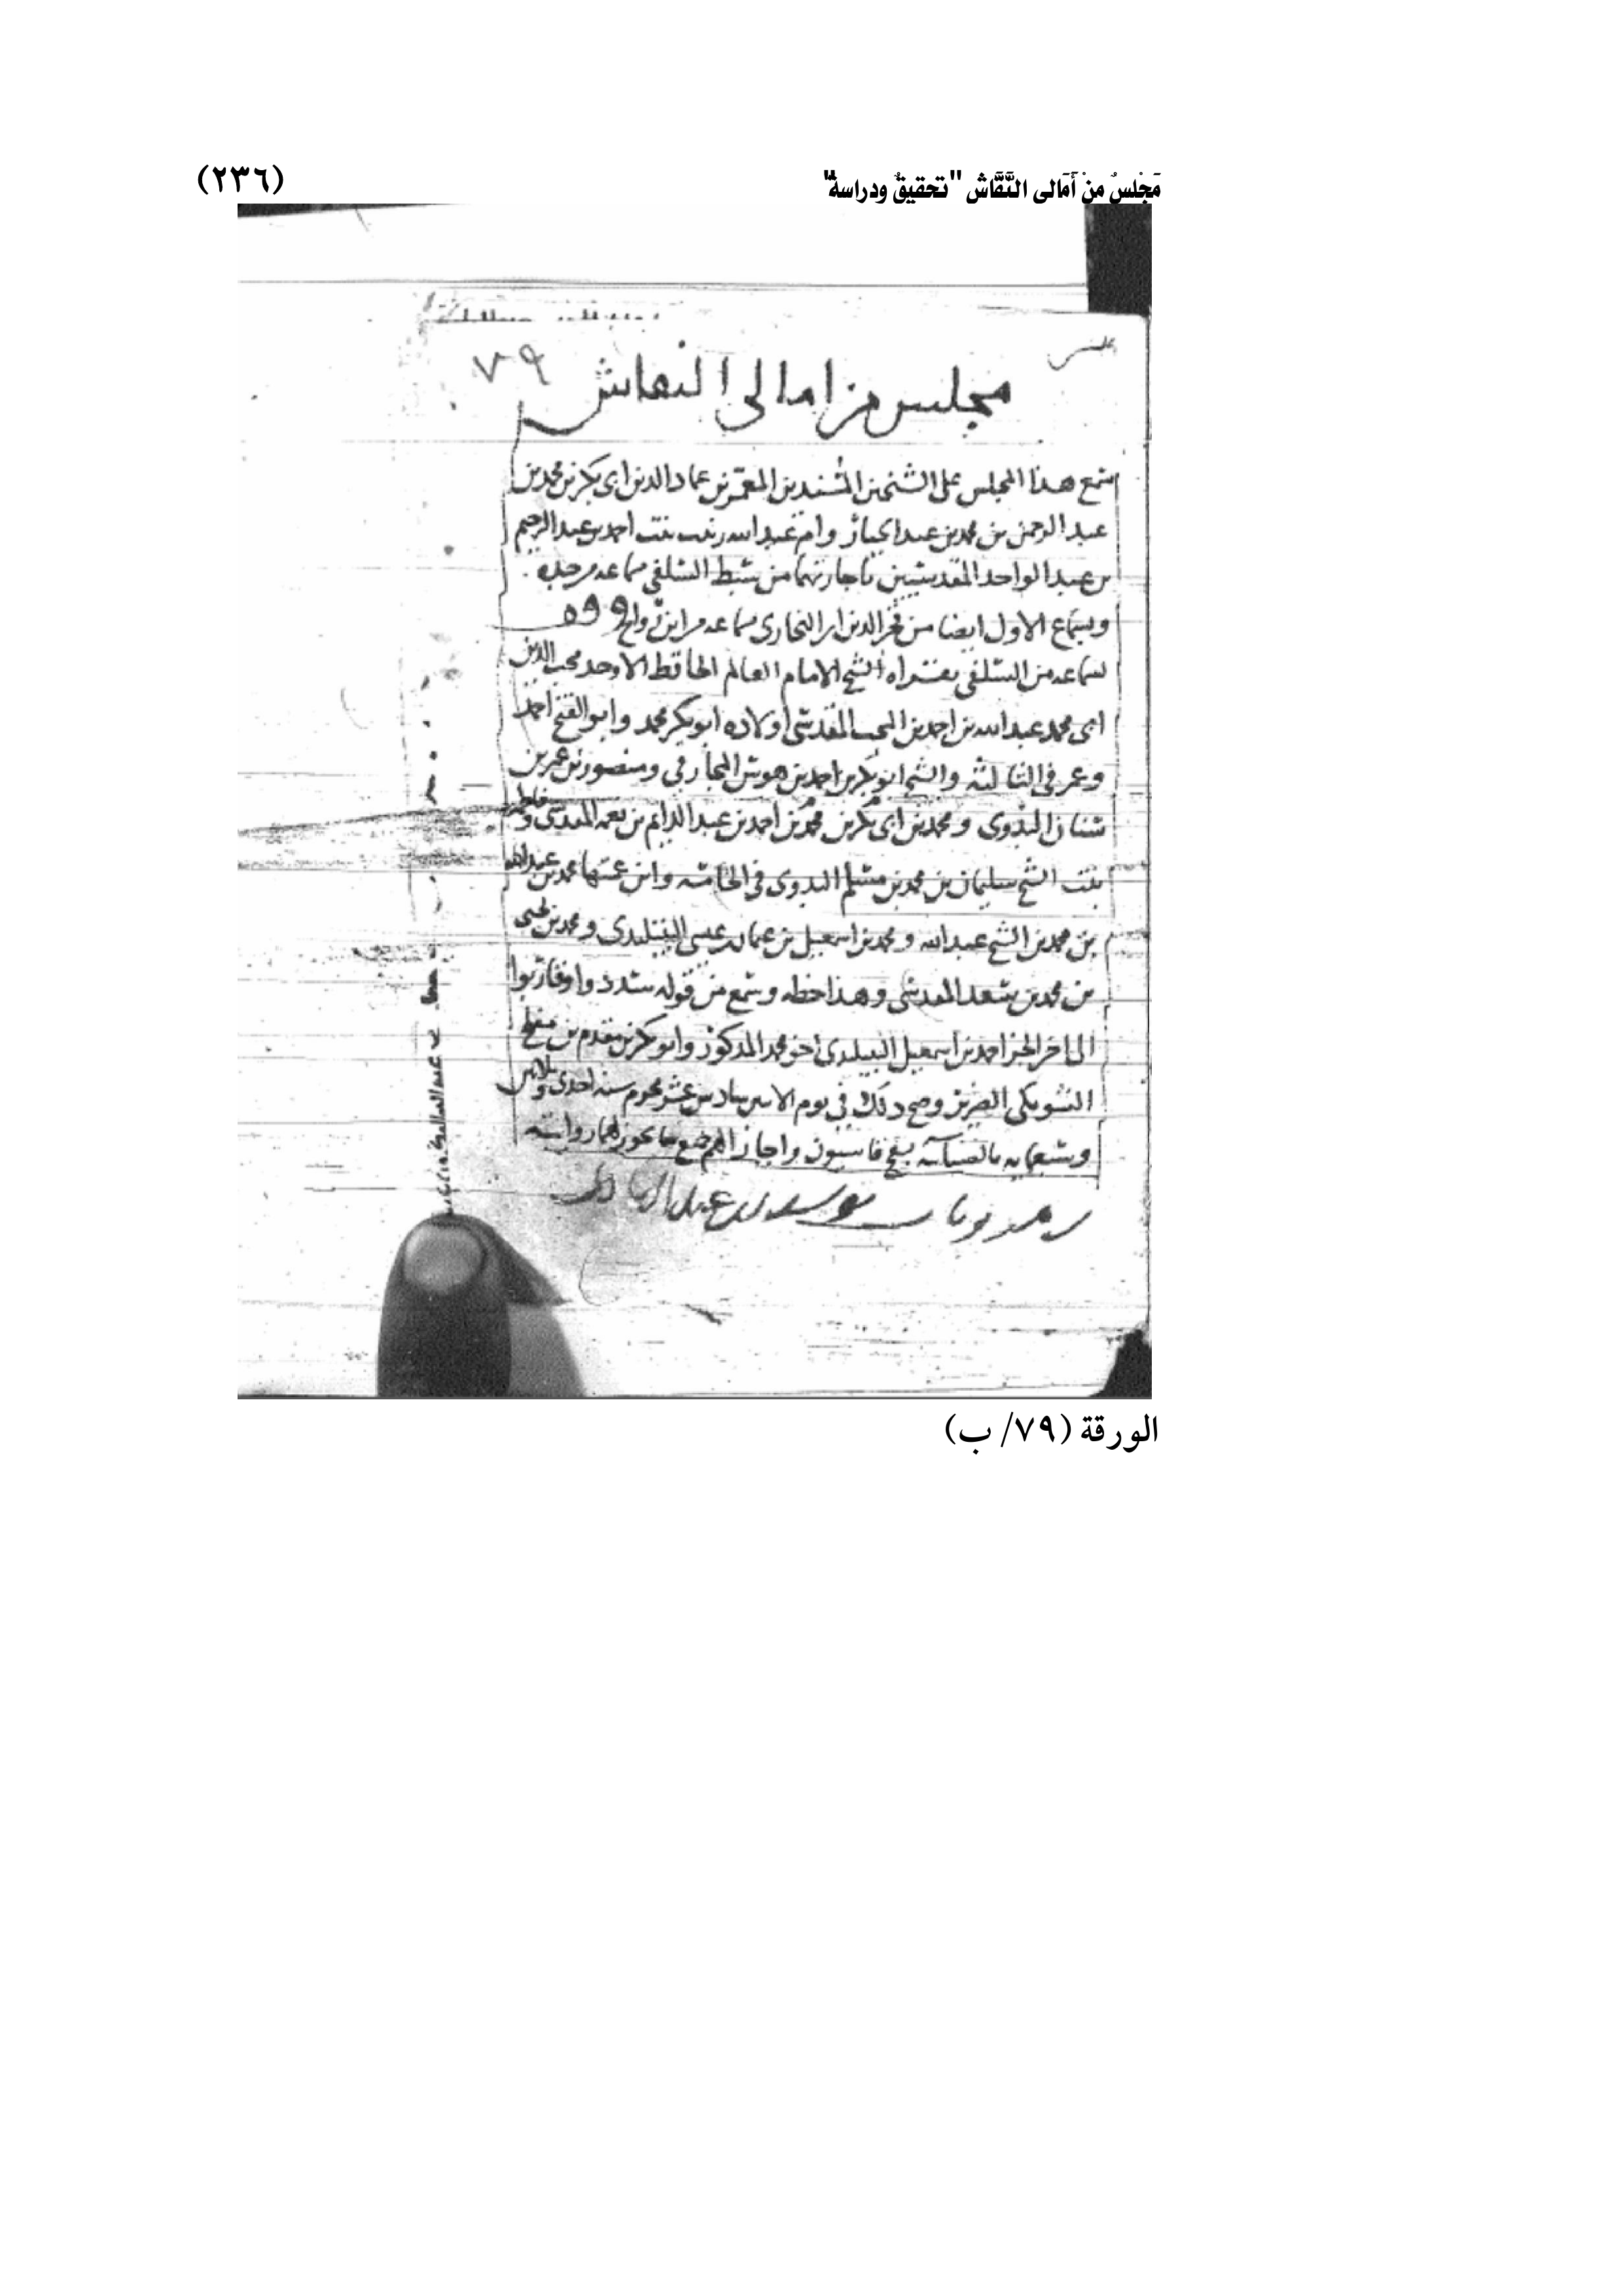 مَجْلِسٌ منْ أَمَالى النَّقَّاش "تحقيقٌ ودراسةٌ" (٢٣٦)
مجلس
٧٩
مجلس من امالى النقاش
سمع هذا المجلس على الشيخين المسندين المعمرين عماد الدين ابى بكر بن محمد بن
عبد الرحمن بن محمد بن عبد الجبار وام عبد الله زينب بنت احمد بن عبد الرحيم
بن عبد الواحد المقدسيين باجازتهما من سبط السلفى بسماعه من جده
وبسماع الاول ايضا من فخر الدين ابن البخارى بسماعه من ابن
بسماعه من السلفى بقراءه الشيخ الامام العالم الحافظ الاوحد محب الدين
ابى محمد عبد الله بن احمد بن المحب المقدسى اولاده ابو بكر محمد وابو الفتح احمد
وعمر فى الثالثة والشيخ ابو بكر بن احمد بن هوش المجارفي ومنصور بن عمر بن
البدوى ومحمد بن ابى بكر بن محمد بن احمد بن عبد الدايم بن نعمه المقدسى وفاطمه
بنت الشيخ سليمان بن محمد بن مسلم البدوى فى الخامسه وابن عمتها محمد بن عبد الله
بن محمد بن الشيخ عبد الله ومحمد بن اسمعيل بن عيسى البتليدى ومحمد بن يحيى
بن محمد بن سعد المقدسى وهذا خطه وسمع من قوله سددوا وقاربوا
الى اخر الجزء احمد بن اسمعيل اخو محمد المذكور وابو بكر بن مقدم بن مفلح
الشويكى الضرير وصح ذلك فى يوم الاثنين سادس عشر محرم سنه احدى وثلاثين
وسبعمايه بالضيائيه بسفح قاسيون واجازا لهم جميع ما يجوز لهما روايته
يوسف بن عبد الهادى
الورقة (٧٩/ ب)